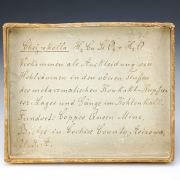 Chalkosolla H₂CuSiO₄ + H₂O
Vorkommen als Auskleidung von
Hohlräumen in den oberen Teufen
der metasomatischen Kontakt-Kupfer-
erz-Lager und Gänge im Kohlenkalk.
Fundort: Copper Queen Mine,
Bisbee in Cochise County, Arizona,